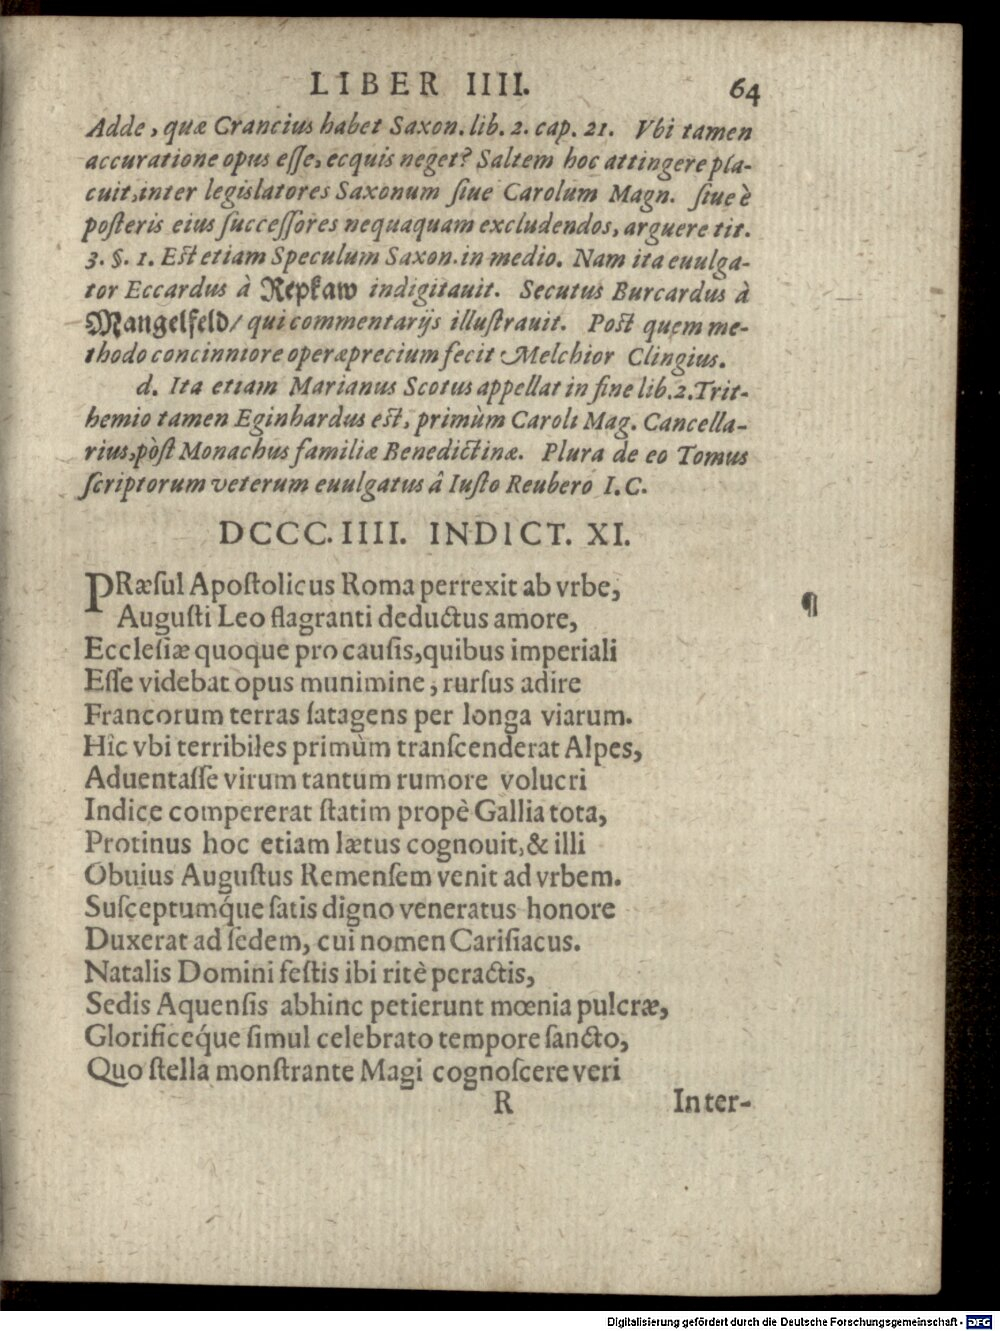 LIBER IIII. 64
Adde, quæ Crancius habet Saxon. lib. 2. cap. 21. Vbi tamen
accuratione opus eſſe, ecquis neget? Saltem hoc attingere pla-
cuit, inter legislatores Saxonum ſiue Carolum Magn. ſiue è
poſteris eius ſucceſſores nequaquam excludendos, arguere tit.
3. §. 1. Eſt etiam Speculum Saxon. in medio. Nam ita euulga-
tor Eccardus à Repkaw indigitauit. Secutus Burcardus à
Mangelfeld/ qui commentarijs illuſtrauit. Poſt quem me-
thodo concinniore operæprecium fecit Melchior Clingius.
d. Ita etiam Marianus Scotus appellat in fine lib. 2. Trit-
hemio tamen Eginhardus eſt, primùm Caroli Mag. Cancella-
rius, pòſt Monachus familiæ Benedictinæ. Plura de eo Tomus
ſcriptorum veterum euulgatus â Iuſto Reubero I. C.
DCCC. IIII. INDICT. XI.
PRæſul Apoſtolicus Roma perrexit ab vrbe,
¶
Auguſti Leo flagranti deductus amore,
Eccleſiæ quoque pro cauſis, quibus imperiali
Eſſe videbat opus munimine, rurſus adire
Francorum terras ſatagens per longa viarum.
Hîc vbi terribiles primùm tranſcenderat Alpes,
Aduentaſſe virum tantum rumore volucri
Indice compererat ſtatim propè Gallia tota,
Protinus hoc etiam lætus cognouit, & illi
Obuius Auguſtus Remenſem venit ad vrbem.
Suſceptumq́ue ſatis digno veneratus honore
Duxerat ad ſedem, cui nomen Cariſiacus.
Natalis Domini feſtis ibi ritè peractis,
Sedis Aquenſis abhinc petierunt mœnia pulcræ,
Glorificeq́ue ſimul celebrato tempore ſancto,
Quo ſtella monſtrante Magi cognoſcere veri
R Inter-
Digitalisierung gefördert durch die Deutsche Forschungsgemeinschaft - DFG